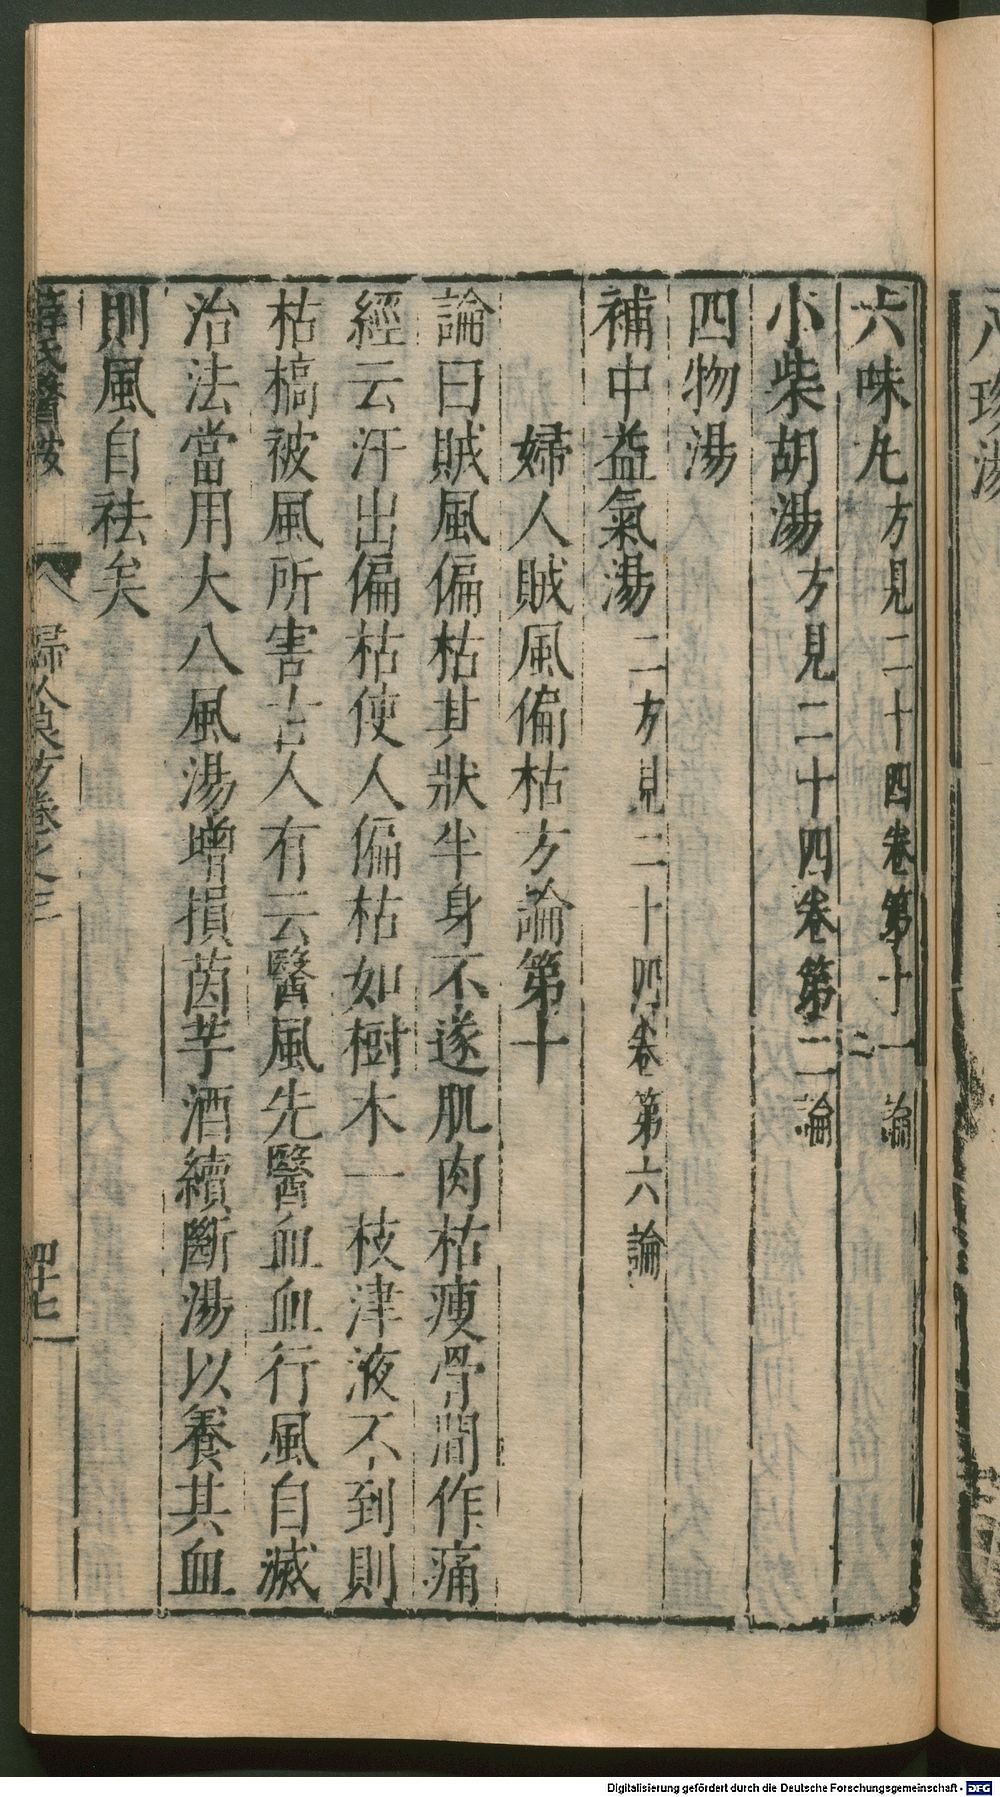 六味丸方見二十四卷第十一論
小柴胡湯方見二十四卷第二論
四物湯
補中益氣湯二方見二十四卷第六論
婦人賊風偏枯方論第十
論曰賊風偏枯其狀半身不遂肌肉枯瘦骨間作痛
經云汗出偏枯使人偏枯如樹木一枝津液不到則
枯槁被風所害古人有云醫風先醫血血行風自滅
治法當用大八風湯增損茵芋酒續斷湯以養其血
則風自祛矣
薛氏醫按 婦人良方卷之三 四十七
八珍湯
Digitalisierung gefördert durch die Deutsche Forschungsgemeinschaft - DFG